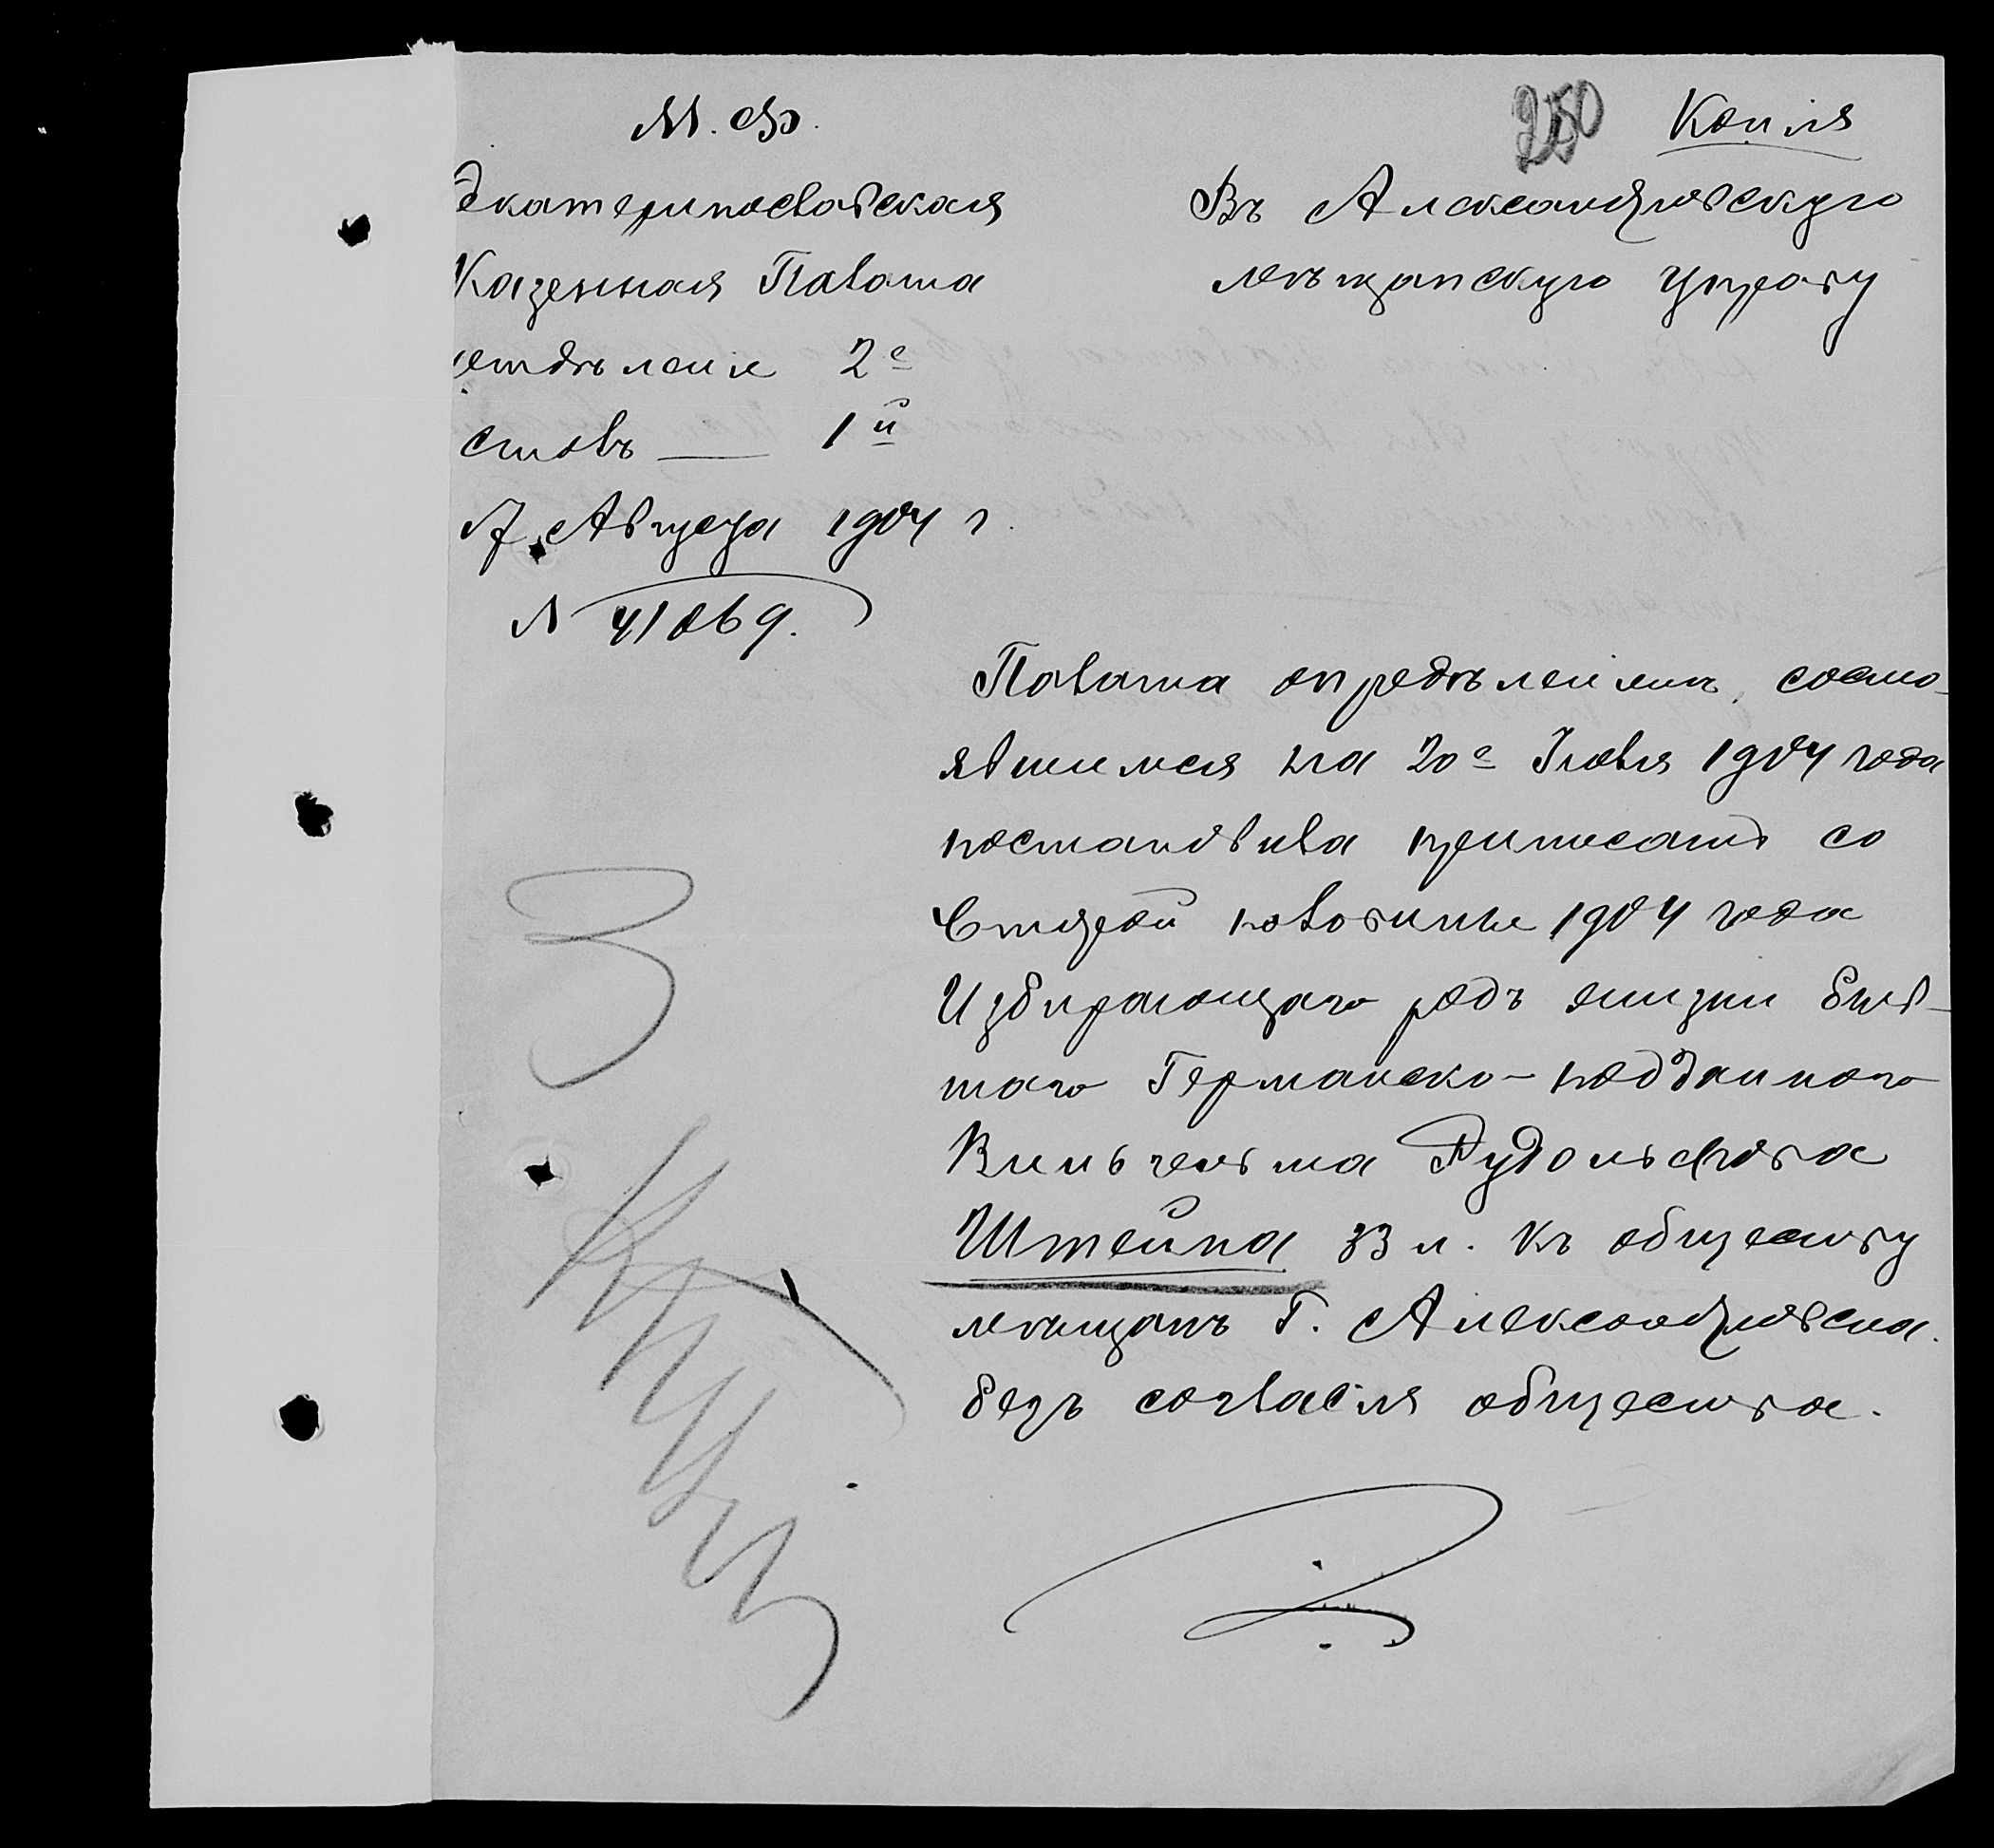 М. Ф.
250 Копія
Екатеринославская
Казенная Палата
отдѣленіе 2е
столъ — 1й
17 Августа 1904 г.
№ 41069.
Въ Александровскую
мѣщанскую управу
Палата опредѣленіемъ, состо-
явшимся на 20е Іюля 1904 года
постановила причислить со
второй половины 1904 года
Избирающаго родъ жизни быв-
шаго Германско-подданного
Вильгельма Рудольфова
Штейна 33 л. къ обществу
мѣщанъ Г. Александровска.
безъ согласія общества.
3